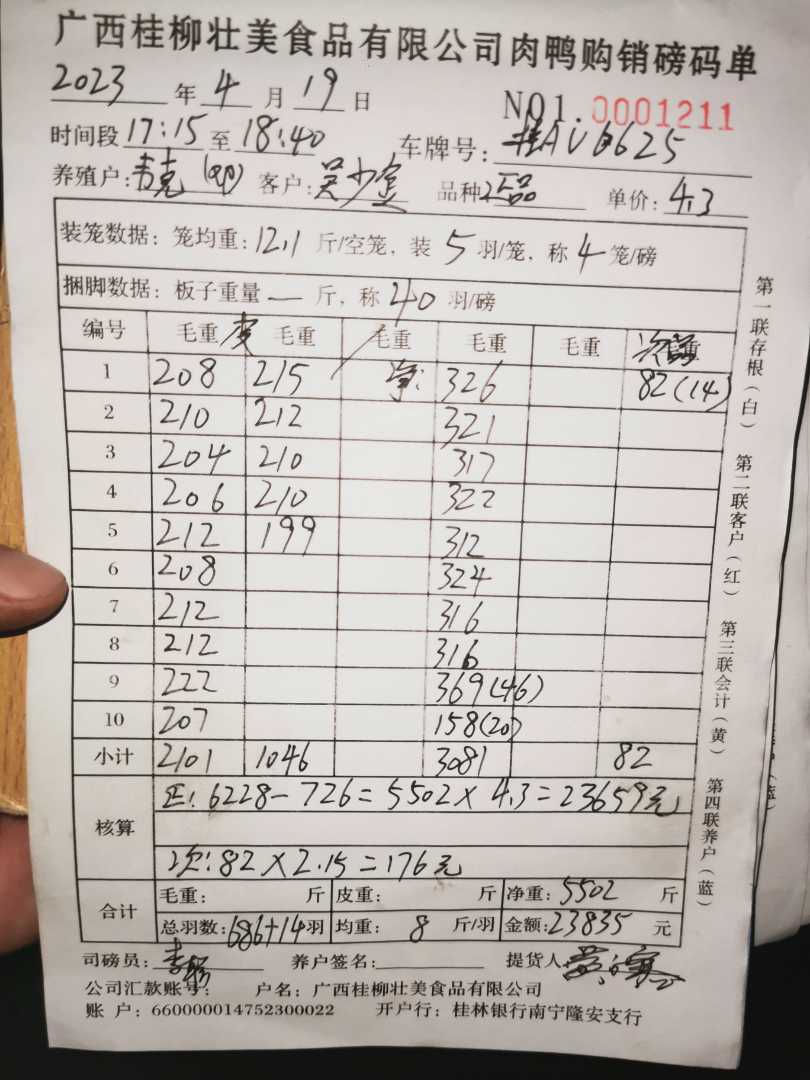 广西桂柳壮美食品有限公司肉鸭购销磅码单
2023 年 4 月 19 日 NO1. 0001211
时间段 17:15 至 18:40 车牌号:桂AV6625
养殖户: 客户:吴少 品种 正品 单价: 4.3
装笼数据:笼均重:12.1 斤/空笼,装 5 羽/笼,称 4 笼/磅
捆脚数据:板子重量 — 斤,称 40 羽/磅
编号 毛重 毛重 毛重 毛重 毛重 毛重
1 208 215 净: 326 82(14)
2 210 212 321
3 204 210 317
4 206 210 322
5 212 199 312
6 208 324
7 212 316
8 212 316
9 222 369(46)
10 207 158(20)
小计 2101 1046 3081 82
核算 正: 6228-726=5502×4.3=23659元
次: 82×2.15=176元
合计 毛重: 斤 皮重: 斤 净重: 5502 斤
总羽数: 686+14 羽 均重: 8 斤/羽 金额: 23835 元
司磅员: 养户签名: 提货人
公司汇款账号: 户名:广西桂柳壮美食品有限公司
账 户:660000014752300022 开户行:桂林银行南宁隆安支行
第一联存根(白) 第二联客户(红) 第三联会计(黄) 第四联养户(蓝)